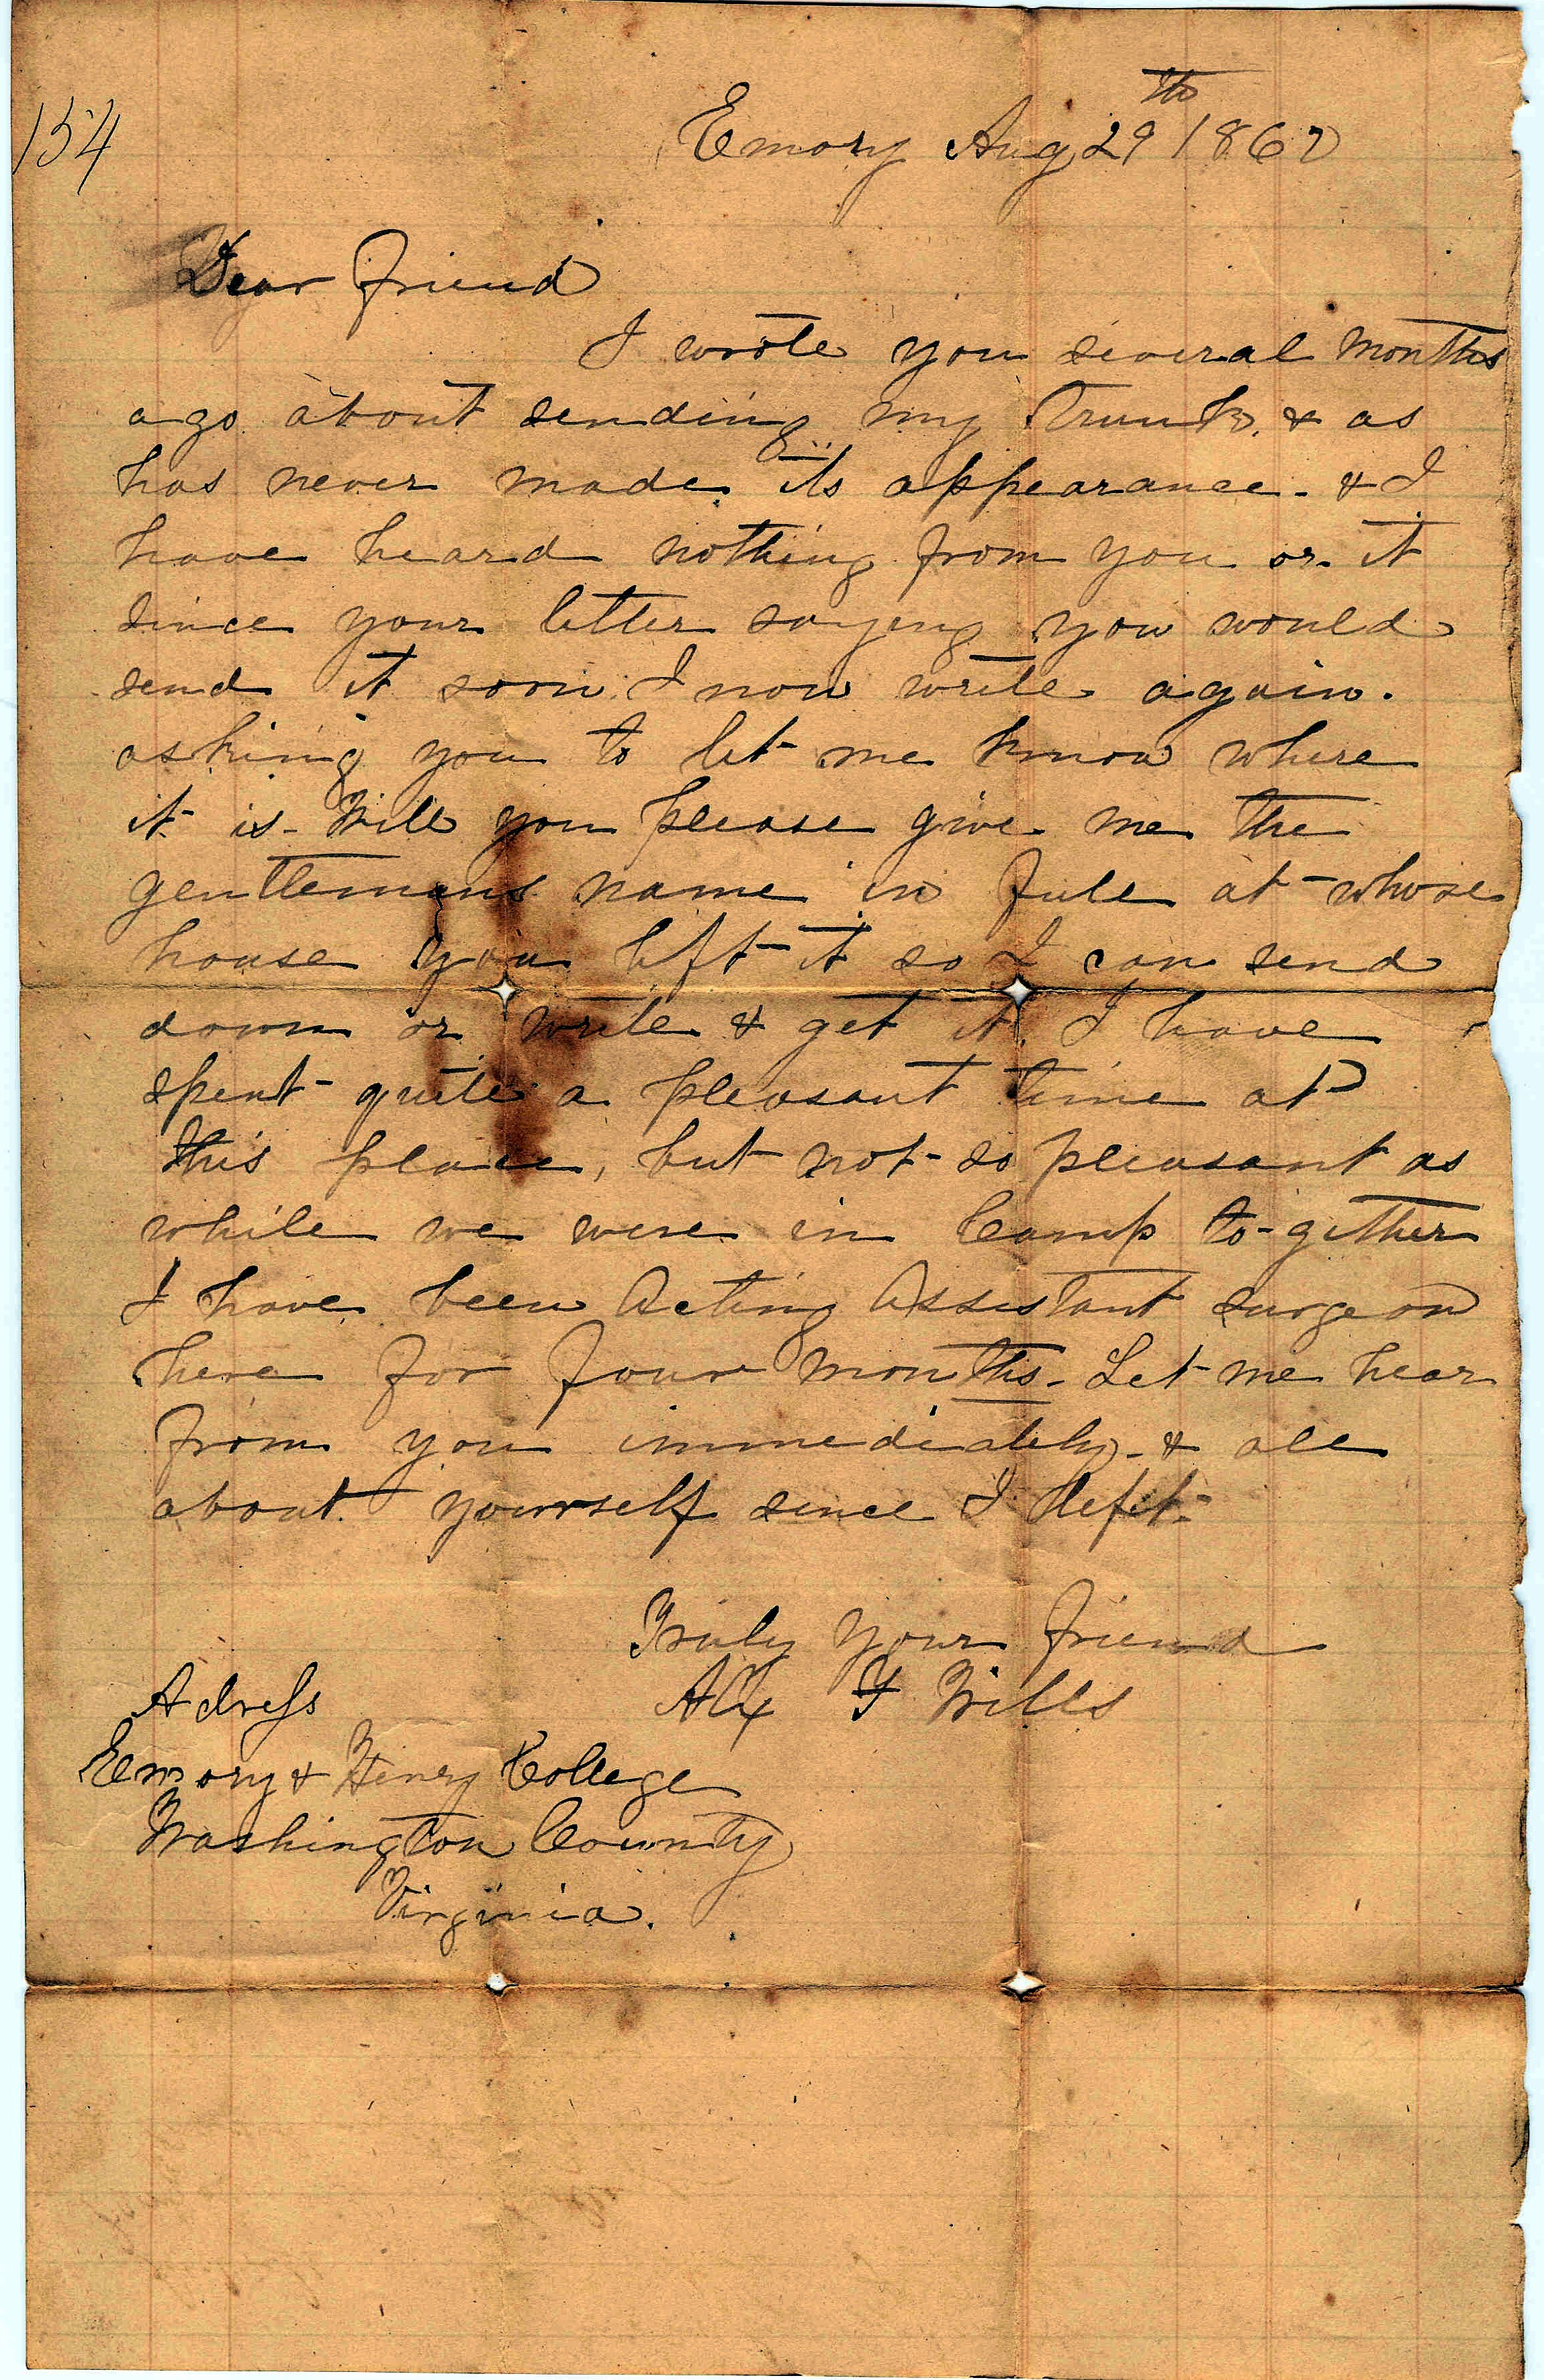 154
Emory Aug 29th 1862
Dear friend
I wrote you several months
ago about sending my Trunk, & as
has never made its appearance - & I
have heard nothing from you or it
since your letter saying you would
send it soon I now write again.
asking you to let me know where
it is - Will you please give me the
gentlemans name in full at whose
house you left it so I can send
down or write & get it. I have
spent quite a pleasant time at
this place, but not so pleasant as
while we were in Camp to-gether
I have been Acting Assistant surgeon
here for four months - Let me hear
from you immediately - & all
about yourself since I left -
Truly your friend
Alx F Wills
Adress
Emory & Henry College
Washington County
Virginia.